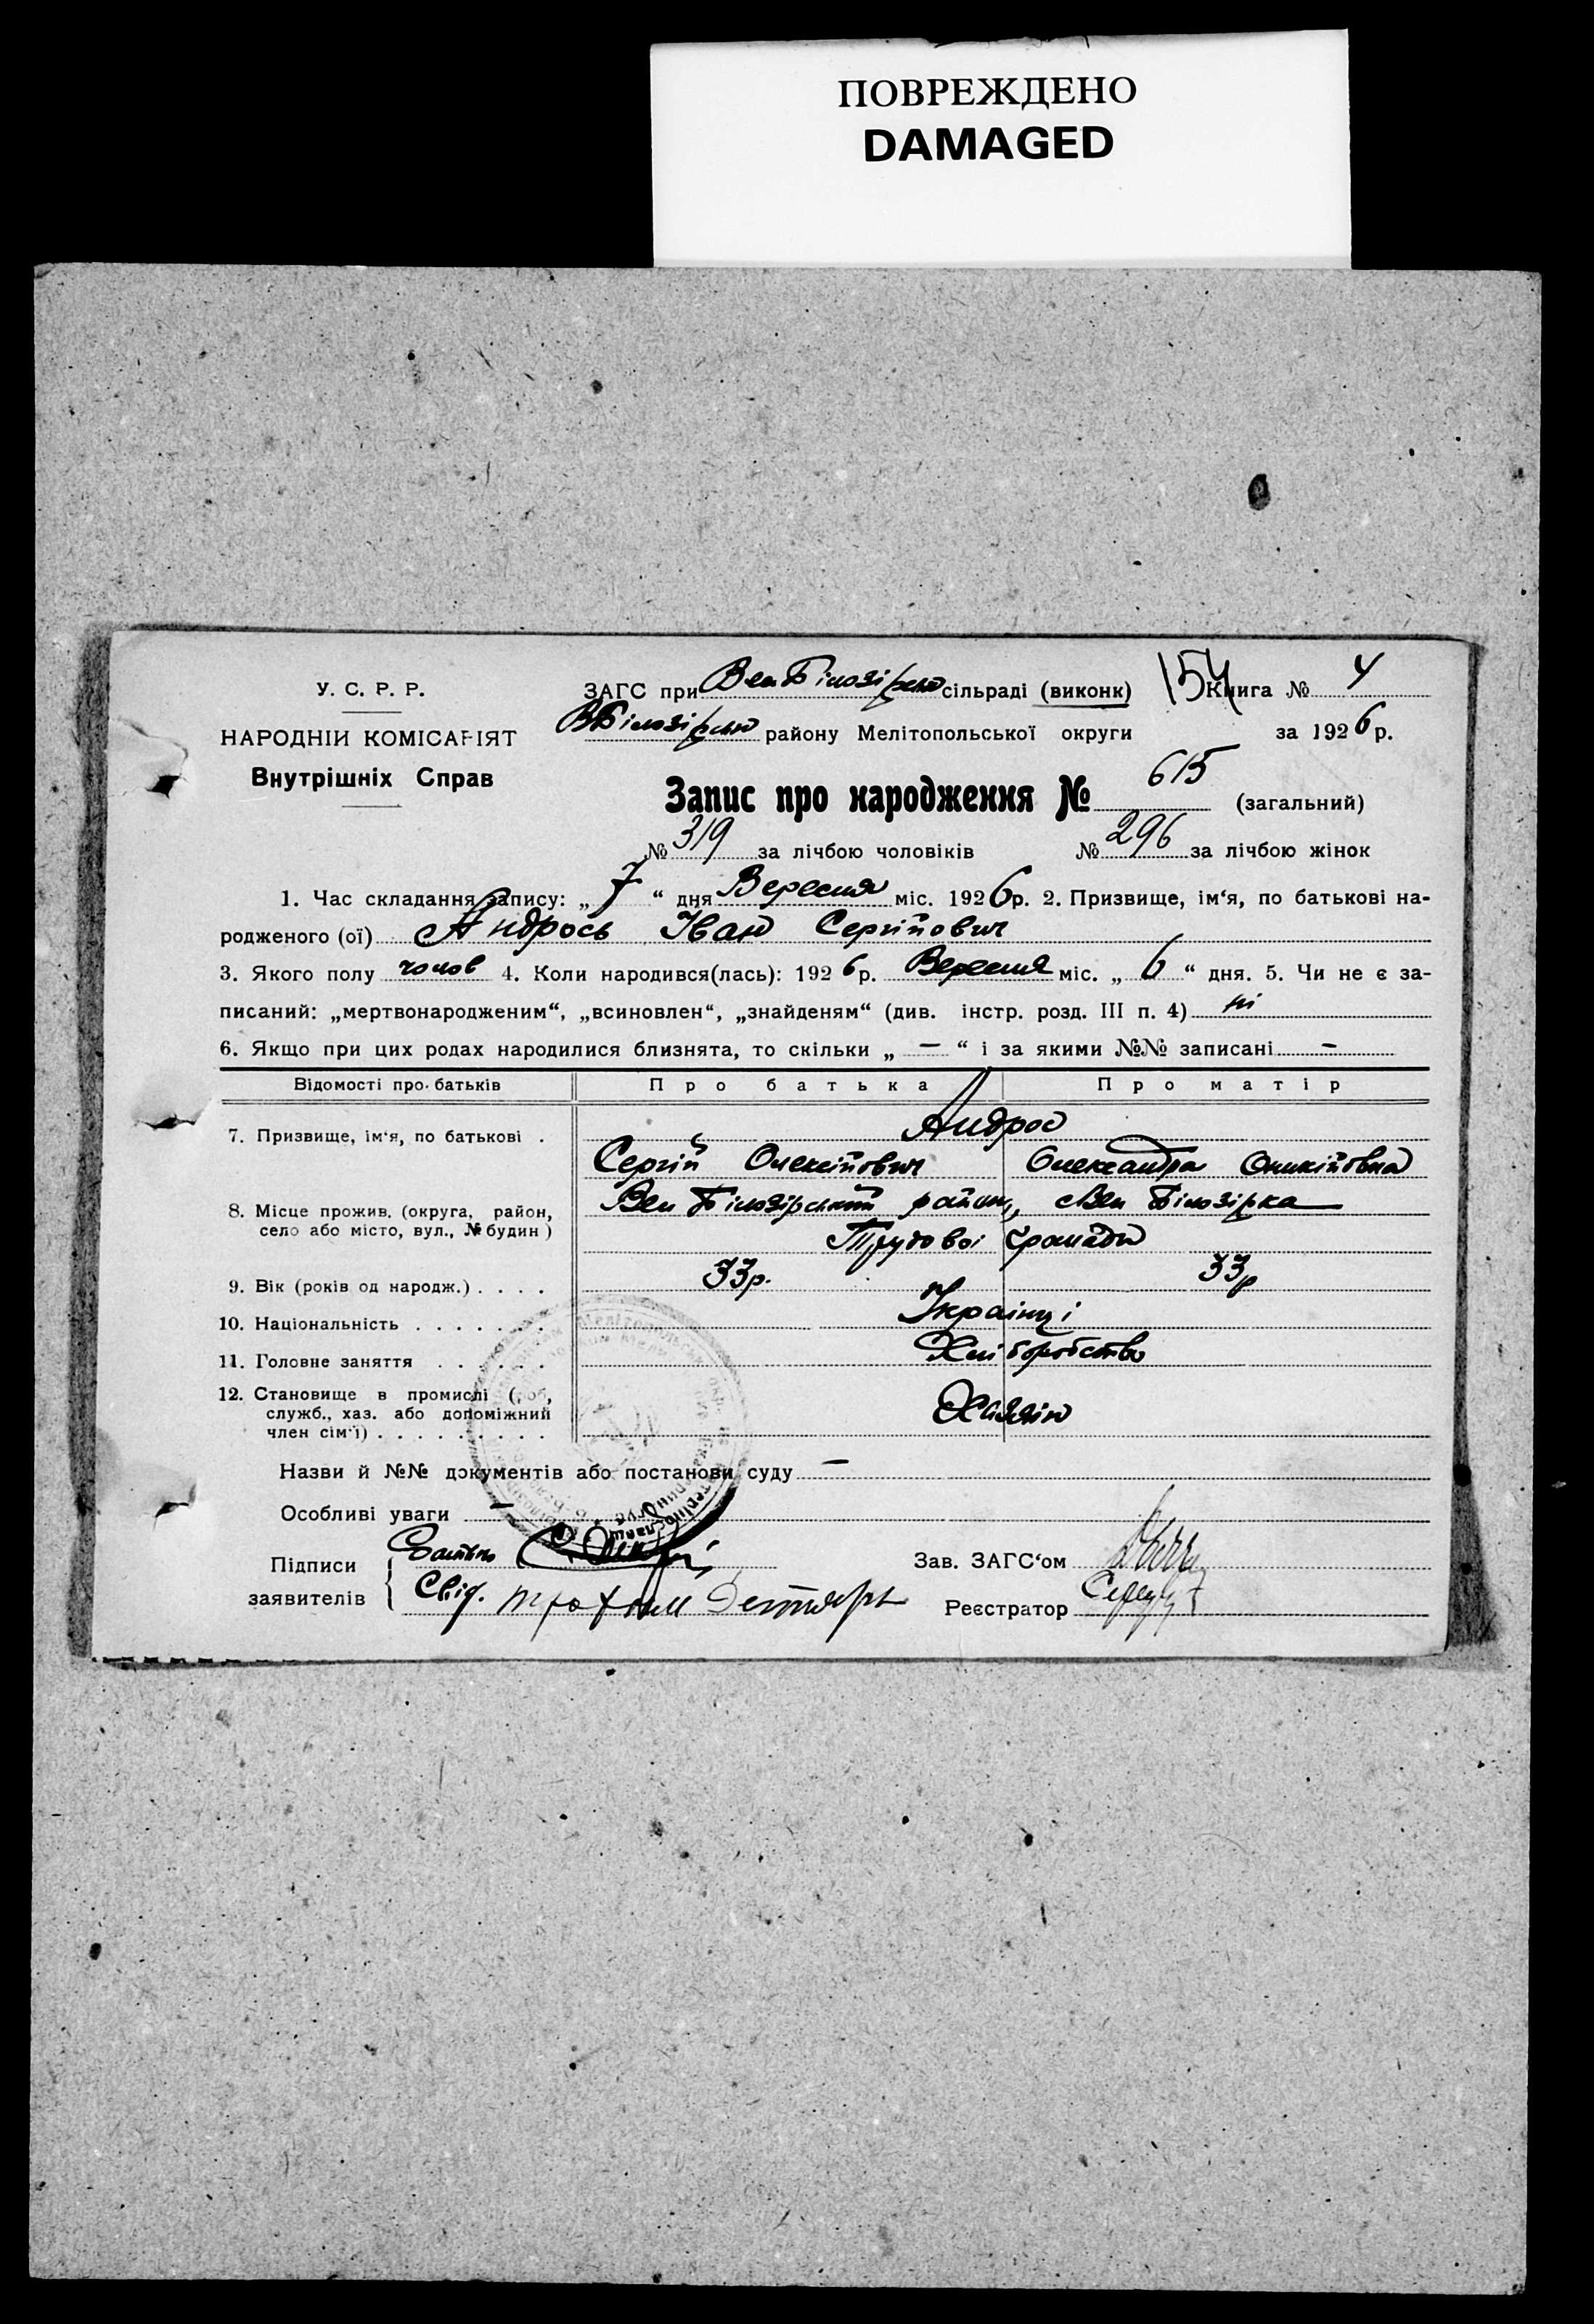 ПОВРЕЖДЕНО
DAMAGED
У. С. Р. Р.
НАРОДНІЙ КОМІСАРІЯТ
Внутрішніх Справ
ЗАГС при Вел Білозірськ сільраді (виконк)
154 Книга № 4
ВБілозірськ району Мелітопольської округи за 1926 р.
Запис про народження № 615 (загальний)
№ 319 за лічбою чоловіків № 296 за лічбою жінок
1. Час складання запису: „ 7 “ дня Вересня міс. 1926 р. 2. Призвище, ім‘я, по батькові на-
родженого (ої) Андрось Іван Сергійович
3. Якого полу чолов 4. Коли народився(лась): 1926 р. Вересня міс. „ 6 “ дня. 5. Чи не є за-
писаний: „мертвонародженим“, „всиновлен“, „знайденям“ (див. інстр. розд. III п. 4) ні
6. Якщо при цих родах народилися близнята, то скільки „ — “ і за якими №№ записані —
Відомості про батьків Про батька Про матір
7. Призвище, ім‘я, по батькові . Андрос
Сергій Олексійович Олександра Оникійовна
8. Місце прожив. (округа, район,
село або місто, вул., № будин)
Вел Білозірський район, с Вел Білозірка
Трудової Громади
9. Вік (років од народж.) . . . . 33р. 33р
10. Національність . . . . . . . Українці
11. Головне заняття . . . . . . Хліборобство
12. Становище в промислі (роб,
служб., хаз. або допоміжний
член сім‘ї) . . . . . . . . . Хазяїн
Назви й №№ документів або постанови суду —
Особливі уваги —
Підписи
заявителів
Батько
Свід. Трохим Дегтярь
Зав. ЗАГС‘ом
Реєстратор